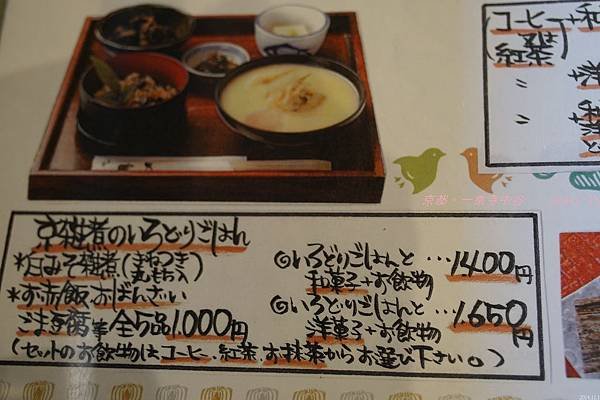 京雑煮のいろどりごはん
*白みそ雑煮(まねつき 丸もち入)
*お赤飯、おばんざい
ごま豆腐等全5品1.000円
◎いろどりごはんと…1400円
和菓子+お飲物
◎いろどりごはんと…1.650円
洋菓子+お飲物
(セットのお飲物はコーヒー、紅茶、お抹茶からお選び下さい。)
(コーヒー又は紅茶)+和
〃 +洋
〃
京都・一乗寺中谷